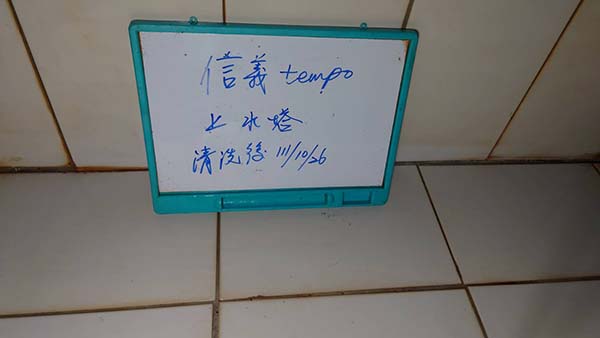 信義 tempo
上水塔
清洗後 111/10/26